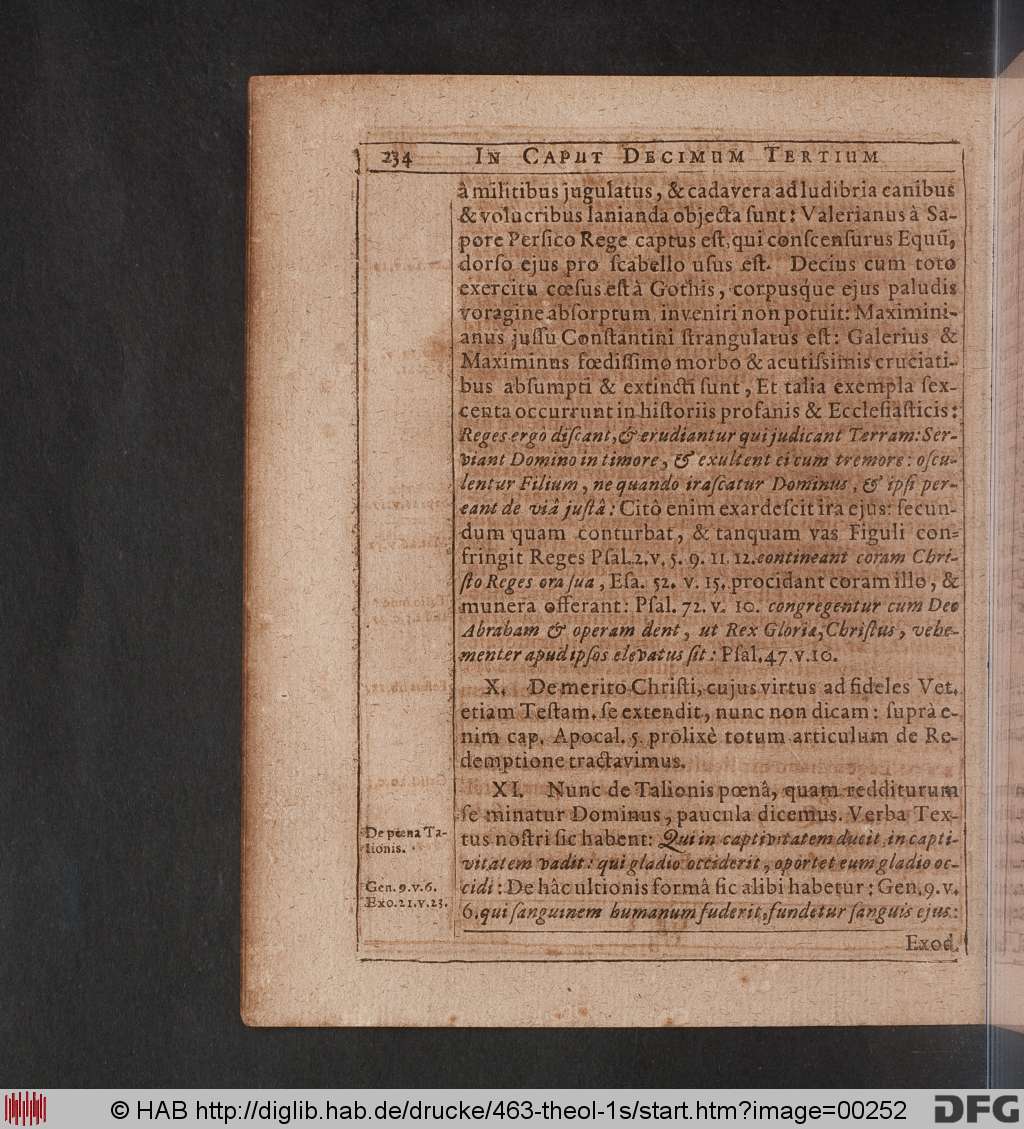 234 IN CAPUT DECIMUM TERTIUM
à militibus jugulatus, & cadavera ad ludibria canibus
& volucribus lanianda objecta sunt: Valerianus à Sa-
pore Persico Rege captus est, qui conscensurus Equū,
dorso ejus pro scabello usus est. Decius cum toto
exercitu cœsus est à Gothis, corpusque ejus paludis
voragine absorptum inveniri non potuit: Maximini-
anus jussu Constantini strangulatus est: Galerius &
Maximinus fœdissimo morbo & acutissimis cruciati-
bus absumpti & extincti sunt, Et talia exempla sex-
centa occurrunt in historiis profanis & Ecclesiasticis:
Reges ergò discant, & erudiantur qui judicant Terram: Ser-
viant Domino in timore, & exultent ei cum tremore: oscu-
lentur Filium, ne quando irascatur Dominus, & ipsi per-
eant de viâ justâ: Citò enim exardescit ira ejus: secun-
dum quam conturbat, & tanquam vas Figuli con-
fringit Reges Psal. 2. v. 5. 9. 11. 12. contineant coram Chri-
sto Reges ora sua, Esa. 52. v. 15. procidant coram illo, &
munera offerant: Psal. 72. v. 10. congregentur cum Deo
Abrabam & operam dent, ut Rex Gloriæ, Christus, vehe-
menter apud ipsos elevatus sit: Psal. 47. v. 10.
X. De merito Christi, cujus virtus ad fideles Vet.
etiam Testam. se extendit, nunc non dicam: suprà e-
nim cap. Apocal. 5. prolixè totum articulum de Re-
demptione tractavimus.
XI. Nunc de Talionis pœnâ, quam redditurum
se minatur Dominus, paucula dicemus. Verba Tex-
tus nostri sic habent: Qui in captivitatem ducit, in capti-
vitatem vadit: qui gladio occiderit, oportet eum gladio oc-
cidi: De hâc ultionis formâ sic alibi habetur: Gen. 9. v.
6. qui sanguinem humanum fuderit, fundetur sanguis ejus:
Exod.
De pœna Ta-
lionis.
Gen. 9. v. 6.
Exo. 21. v. 23.
© HAB http://diglib.hab.de/drucke/463-theol-1s/start.htm?image=00252
DFG